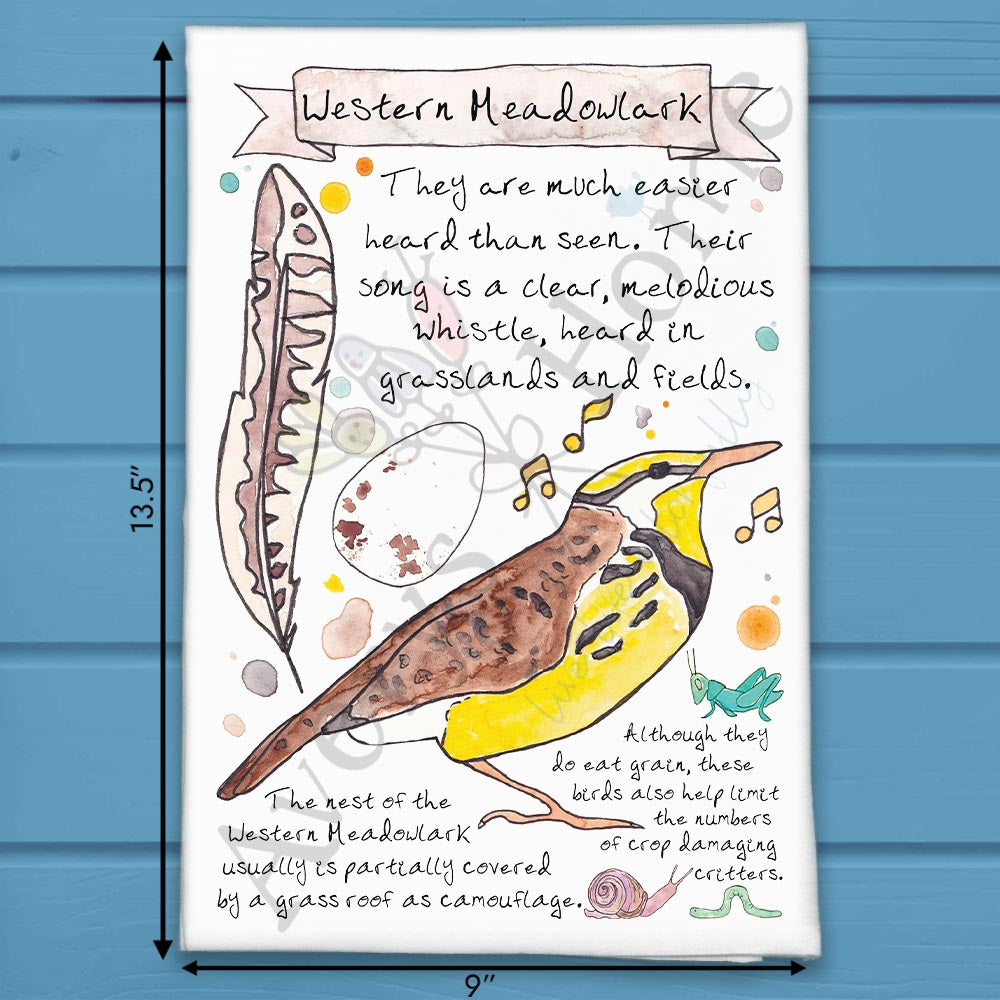 Western Meadowlark
They are much easier
heard than seen. Their
song is a clear, melodious
whistle, heard in
grasslands and fields.
13.5"
Although they
do eat grain, these
birds also help limit
the numbers
of crop damaging
critters.
The nest of the
Western Meadowlark
usually is partially covered
by a grass roof as camouflage.
9"